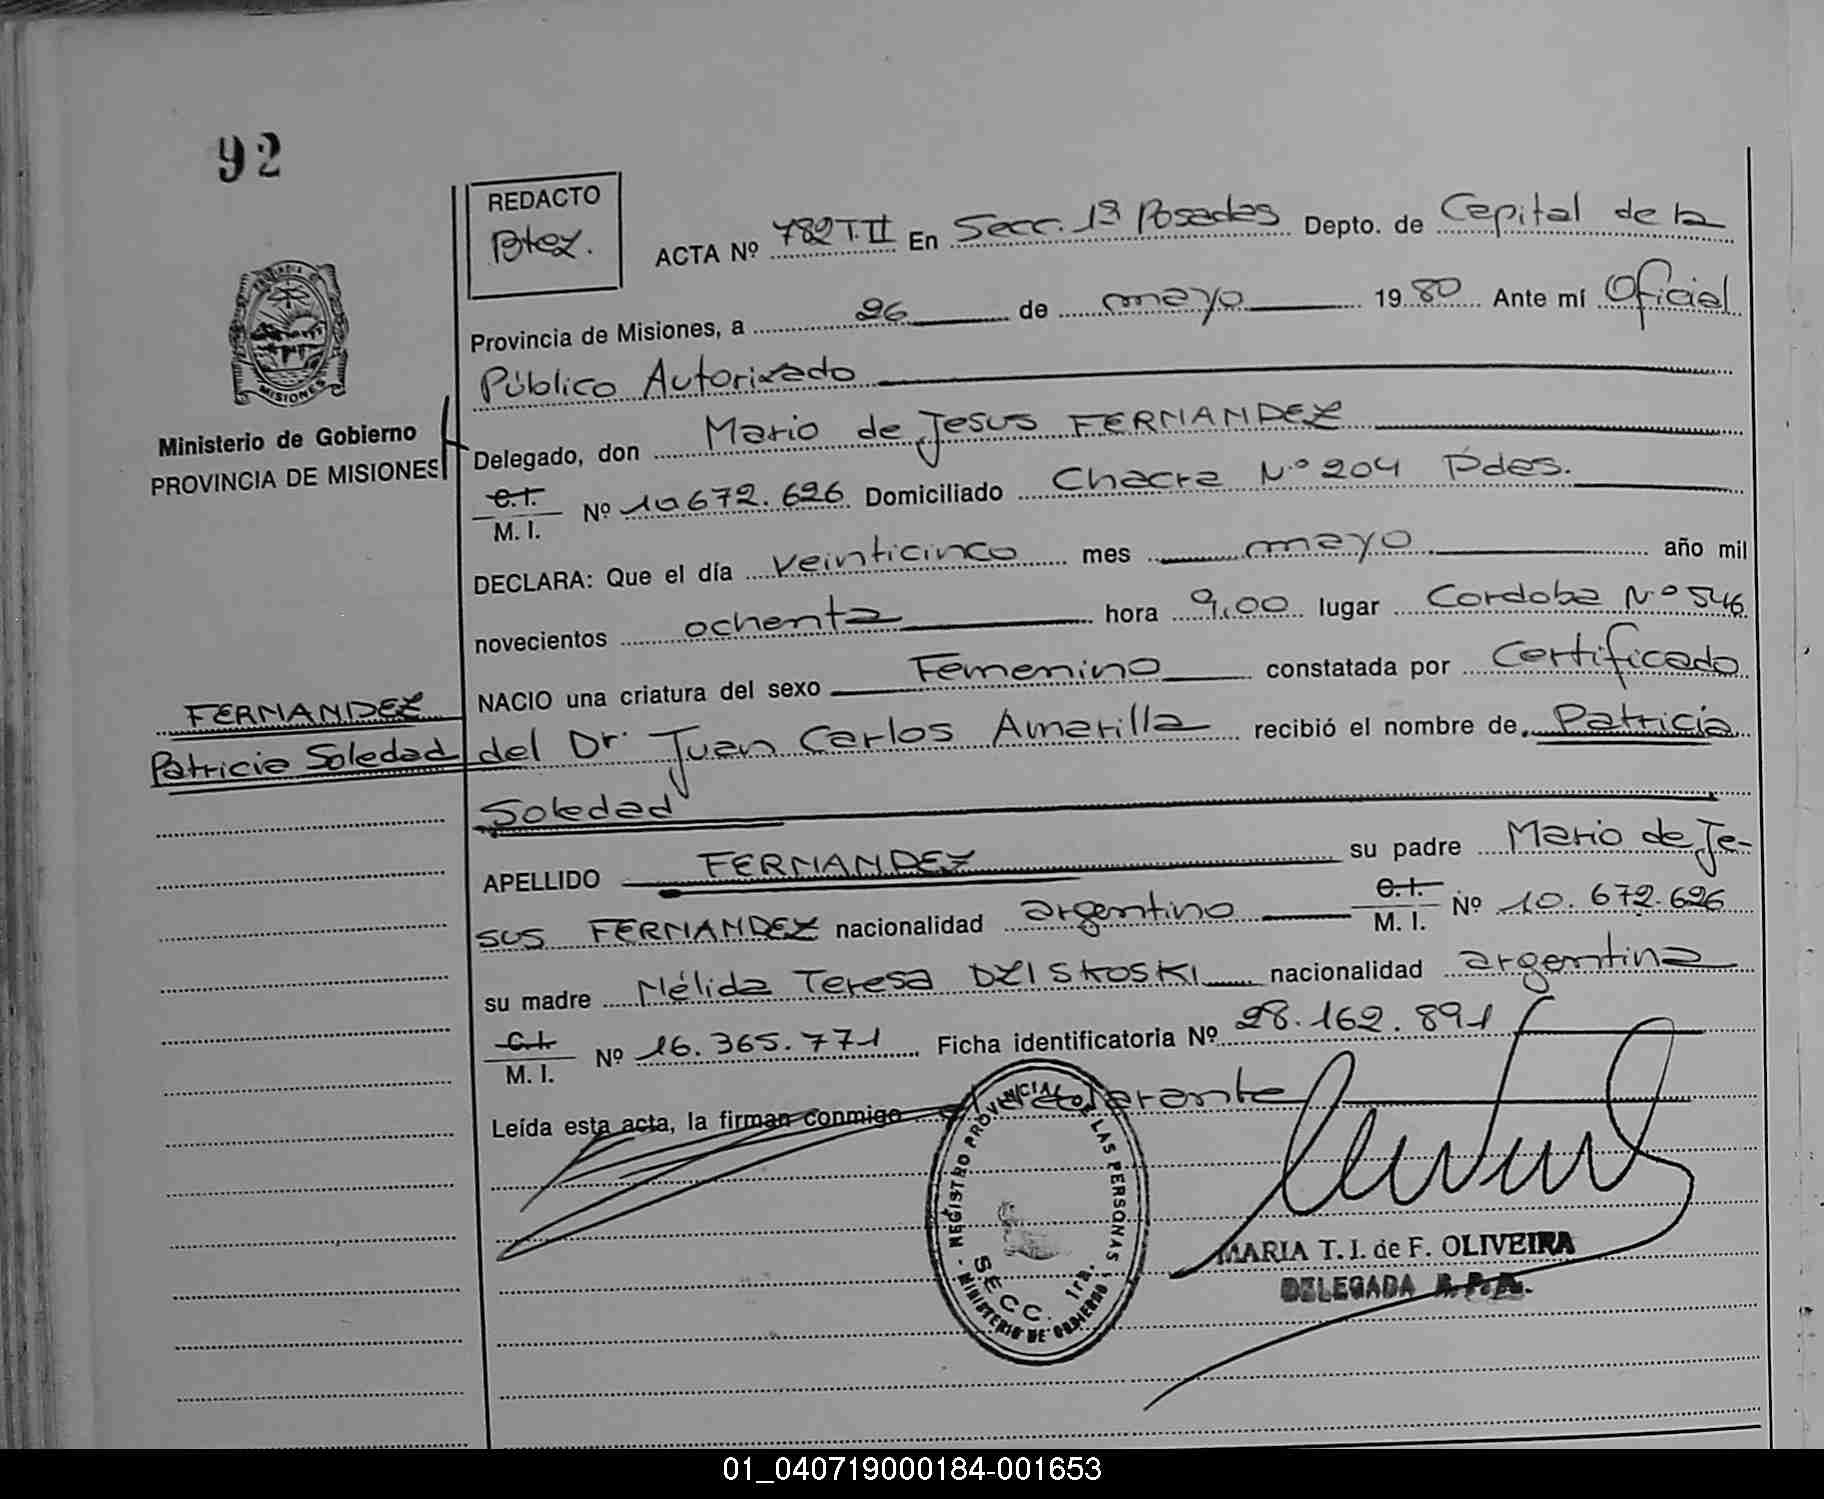 92
REDACTO
Btez.
ACTA Nº 782 T. II En Secc. 1ª Posadas Depto. de Capital de la
Provincia de Misiones, a 26 de mayo 1980 Ante mí Oficial
Público Autorizado
PROVINCIA DE MISIONES
Ministerio de Gobierno
PROVINCIA DE MISIONES
Delegado, don Mario de Jesus FERNANDEZ
C.I.
M. I. Nº 10.672.626 Domiciliado Chacra Nº 204 Pdas.
DECLARA: Que el día veinticinco mes mayo año mil
novecientos ochenta hora 9,00 lugar Cordoba Nº 546
NACIO una criatura del sexo Femenino constatada por Certificado
FERNANDEZ
Patricia Soledad
del Dr. Juan Carlos Amarilla recibió el nombre de Patricia
Soledad
APELLIDO FERNANDEZ su padre Mario de Je-
sus FERNANDEZ nacionalidad argentino C.I. M. I. Nº 10.672.626
su madre Nélida Teresa DZISKOSKI nacionalidad argentina
C.I.
M. I. Nº 16.365.771 Ficha identificatoria Nº 28.162.891
Leída esta acta, la firman conmigo declarante
REGISTRO PROVINCIAL DE LAS PERSONAS
SECC. 1ra.
MINISTERIO DE GOBIERNO
MARIA T. I. de F. OLIVEIRA
DELEGADA R. P. P.
01_040719000184-001653